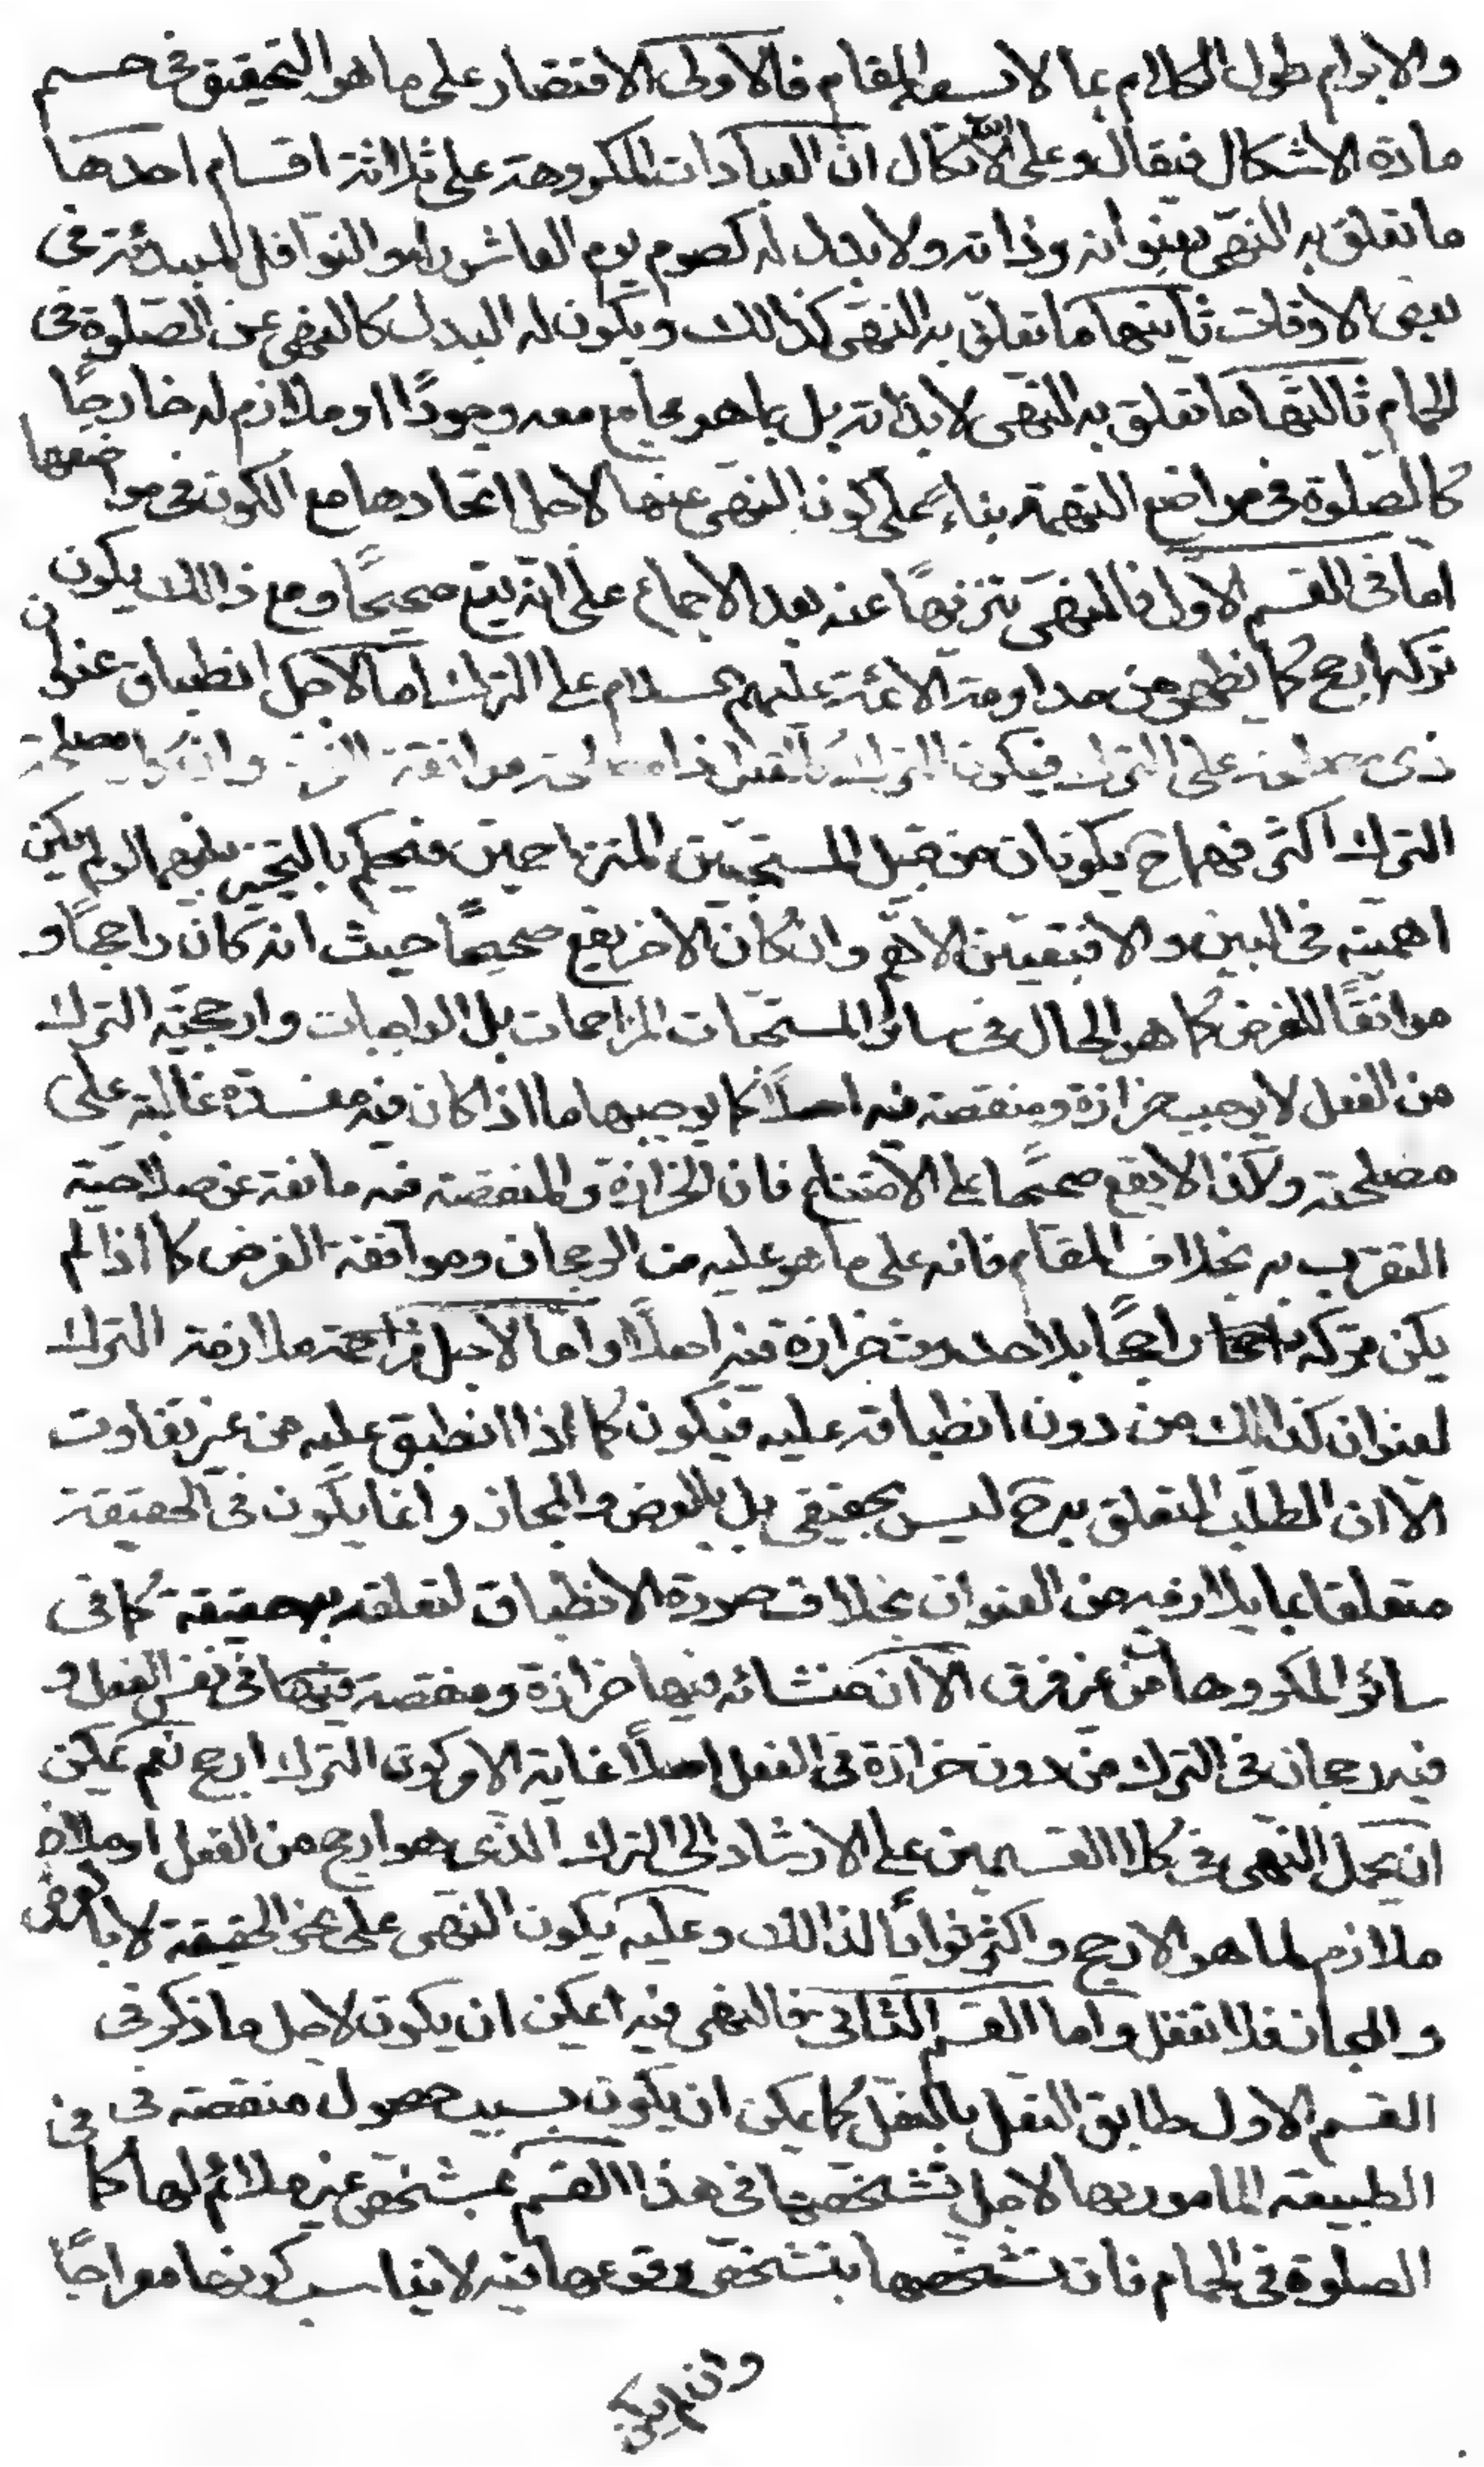 والابرام طول الكلام بما لا يسعه المقام فالاولى الاقتصار على ما هو التحقيق فى حسم
مادة الاشكال فيقال وعلى الله الاتكال ان العبادات المكروهة على ثلاثة اقسام احدها
ما تعلق به النهى بعنوانه وذاته ولا بدل له كصوم يوم العاشوراء والنوافل المبتدئة فى
بعض الاوقات ثانيتها ما تعلق به النهى كذالك ويكون له البدل كالنهى عن الصلوة فى
الحمام ثالثها ما تعلق به النهى لا بذاته بل بما هو مجامع معه وجودًا او ملازم له خارجًا
كالصلوة فى مواضع التهمة بناءً على كون النهى عنها لاجل اتحادها مع الكون فى مواضعها
اما فى القسم الاول فالنهى تنزيهًا عنه بعد الاجماع على انه يقع صحيحًا ومع ذالك يكون
تركه ارجح كما يظهر من مداومة الائمة عليهم السلام على الترك اما لاجل انطباق عنوان
ذى مصلحة على الترك فيكون الترك كالفعل ذا مصلحة موافقة الغرض وان كان مصلحة
الترك اكثر فهما ح يكونان من قبيل المستحبين المتزاحمين فيحكم بالتخيير بينهما لو لم يكن
اهمية فى البين والا فيتعين الاهم وان كان الاخر يقع صحيحًا حيث انه كان راجحًا و
موافقًا للغرض كما هو الحال فى سائر المستحبات المزاحمات بل الواجبات وارجحية الترك
من الفعل لا يوجب حزازة ومنقصة فيه اصلًا كما يوجبها ما اذا كان فيه مفسدة غالبة على
مصلحته ولذا لا يقع صحيحًا على الامتناع فان الحزازة والمنقصة فيه مانعة عن صلاحية
التقرب به بخلاف المقام فانه على ما هو عليه من الرجحان وموافقة الغرض كما اذا لم
يكن تركه راجحًا بلا حدوث حزازة فيه اصلًا واما لاجل ملازمة الترك
لعنوان كذالك من دون انطباقه عليه فيكون كما اذا انطبق عليه من غير تفاوت
الا ان الطلب المتعلق به ح ليس بحقيقى بل بالعرض والمجاز وانما يكون فى الحقيقة
متعلقا بما يلازمه من العنوان بخلاف صورة الانطباق لتعلقه به حقيقة كما فى
سائر المكروهات من غير فرق الا ان منشائه فيها حزازة ومنقصة فى نفس الفعل و
فيه رجحان فى الترك من دون حزازة فى الفعل اصلًا غاية الامر كون الترك ارجح نعم يمكن
ان يحمل النهى فى كلا القسمين على الارشاد الى الترك الذى هو ارجح من الفعل او
ملازم لما هو الارجح واكثر ثوابًا لذالك وعليه يكون النهى على نحو الحقيقة لا بالعرض
والمجاز فلا تغفل واما القسم الثانى فالنهى فيه يمكن ان يكون لاجل ما ذكر فى
القسم الاول طابق النعل بالنعل كما يمكن ان يكون بسبب حصول منقصة فى
الطبيعة المامور بها لاجل تشخصها فى هذا القسم بمشخص غير ملائم لها كما
الصلوة فى الحمام فان تشخصها بتشخص وقوعها فيه لا يناسب كونها معراجًا
وان لم يكن